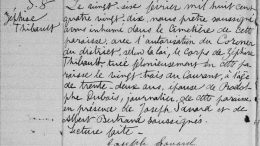 S. 8
Zéphise
Thibault
Le vingt six février mil huit cent
quatre vingt dix nous prêtre soussigné
avons inhumé dans le Cimetière de cette
paroisse avec l'autorisation du Coroner
du district, selon la loi, le corps de Zéphise
Thibault, tuée pieusement en cette pa
roisse le vingt trois du courant, à l'âge
de trente deux ans, épouse de
Dubois, journalier, de cette paroisse
en présence de Joseph Savard et de
Albert Bertrand soussignés.
Lecture faite.
Joseph Savard